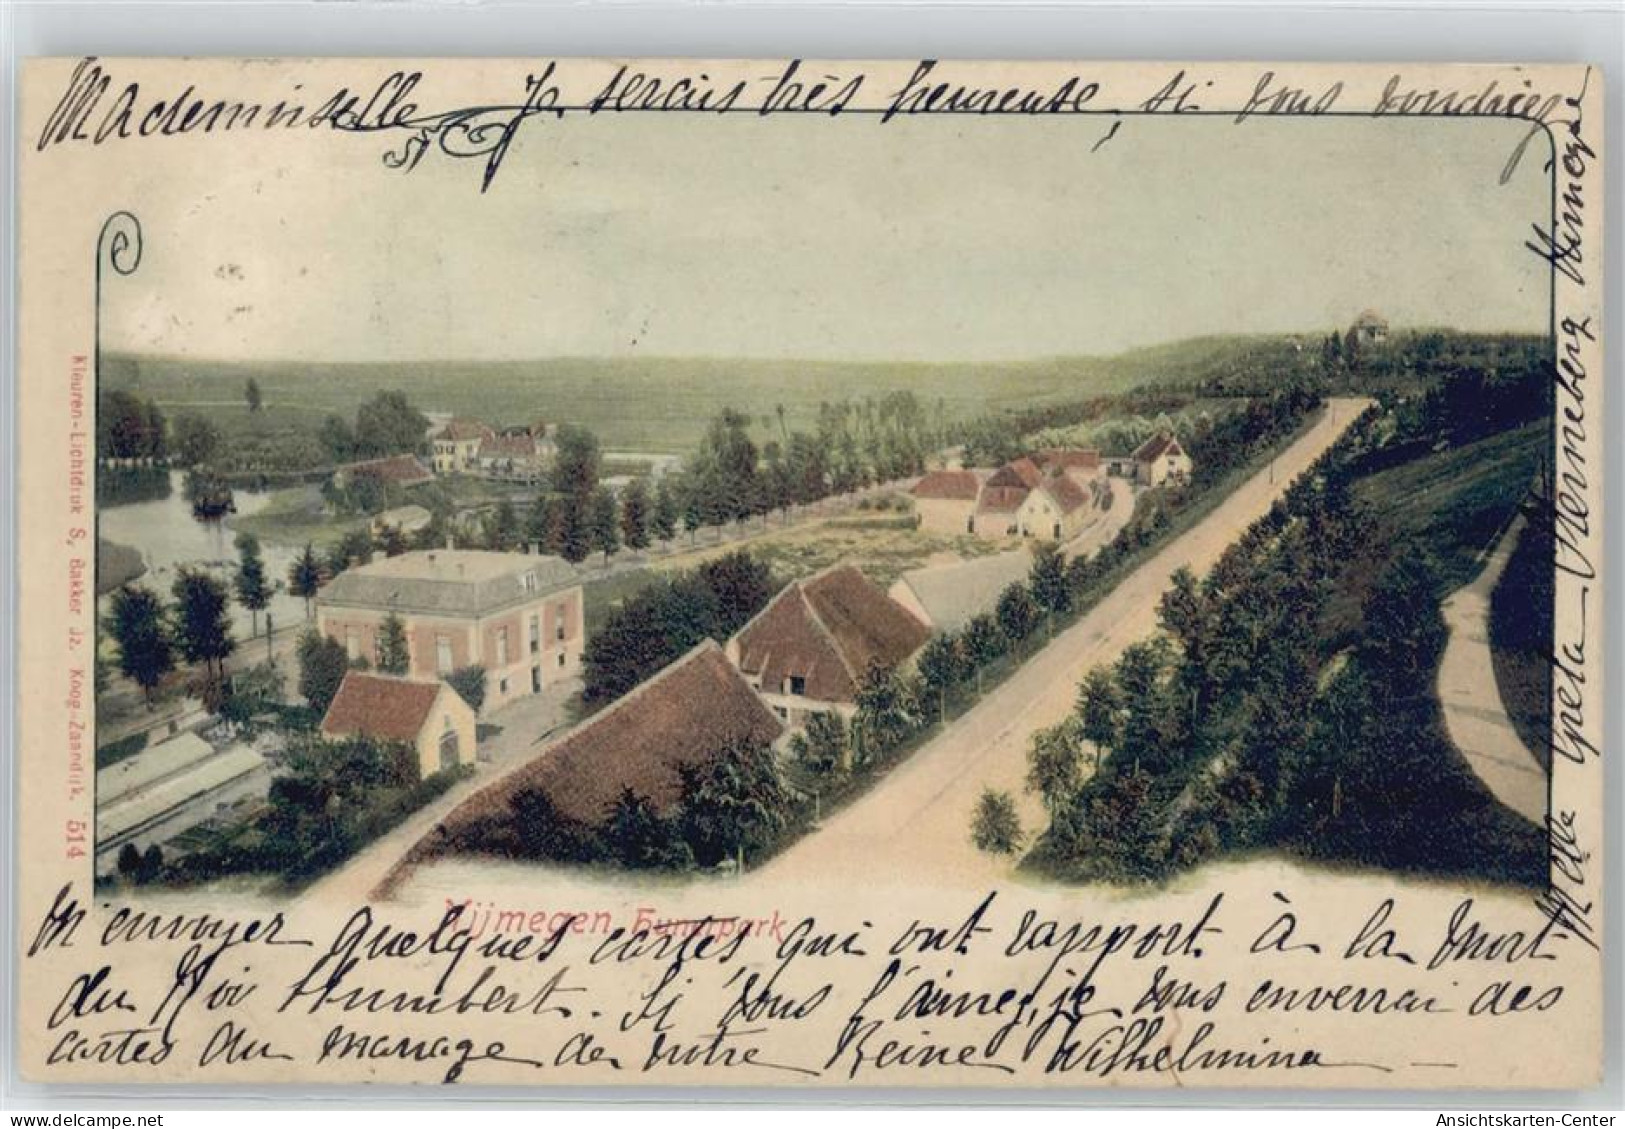 Mademoiselle Je serais très heureuse, si vous voudriez
m'envoyer quelques cartes qui ont rapport à la mort
du Roi Humbert. Si vous l'aimez, je vous enverrai des
cartes du mariage de notre Reine Wilhelmina —
Melle Greta Wenneberg Nimègue
Nijmegen, Hunerpark
Kleuren-Lichtdruk S. Bakker Jz. Koog-Zaandijk. 514
Ansichtskarten-Center